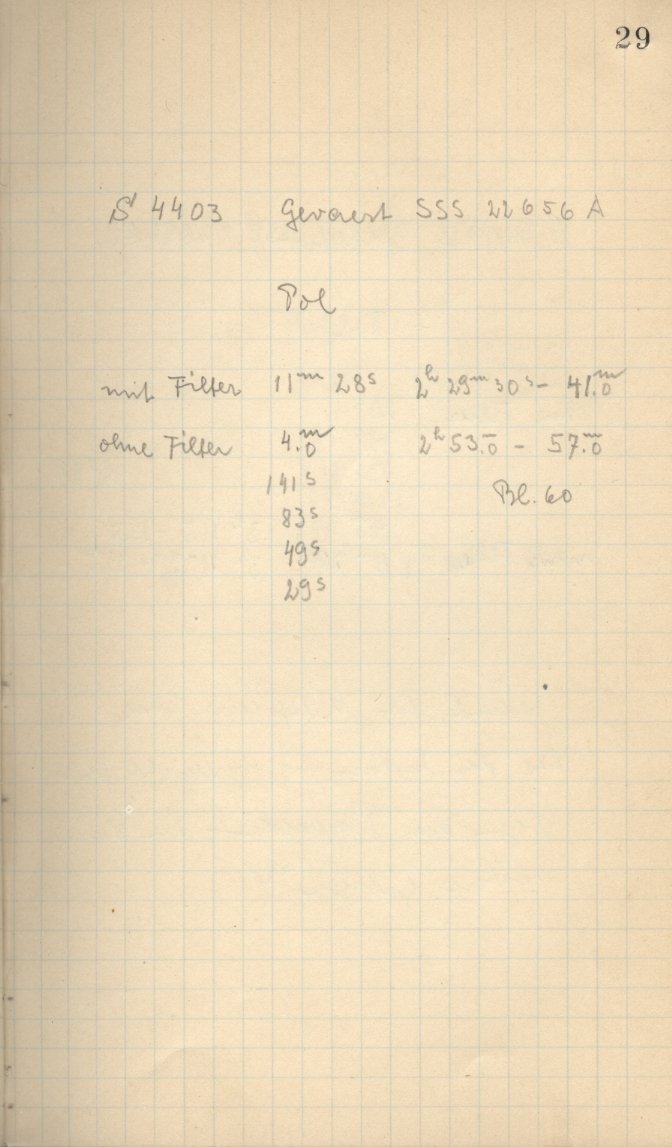 29
S 4403 Gevaert SSS 22656 A
Pol
mit Filter 11ᵐ 28ˢ 2ʰ 29ᵐ 30ˢ - 41.ᵐ0
ohne Filter 4.ᵐ0 2ʰ 53.ᵐ0 - 57.ᵐ0
141ˢ Bl. 60
83ˢ
49ˢ
29ˢ